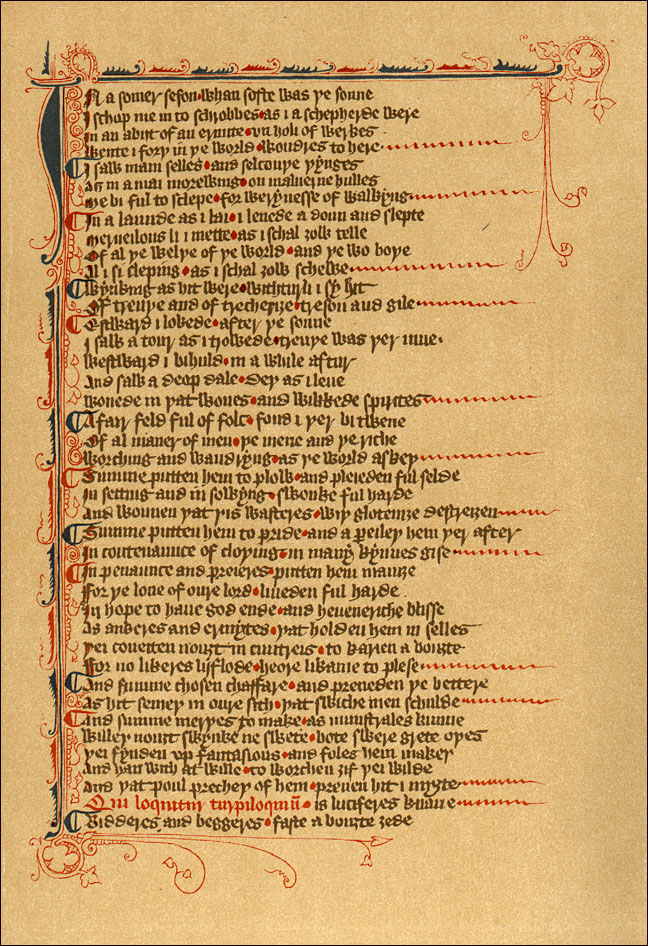 In a somer seson • whan softe was ye sonne
I schop me in to schrobbes • as i a schepherde were
In an abyt of an ermite • vn holi of werkes
Wente i fory in ye world • wondres to here
I saw mani selles • and selcouye yynges
As in a mai morewnyng • on malverne hulles
Me bi ful to slepe • for werynesse of walkyng
In a launde as i lai • i lenede a doun and slepte
Merveilous li i mette • as i schal zow telle
Of al ye welye of ye world • and ye wo boye
Al i si sleping • as i schal zow schewe
Wynking as hit were • withturli i sy hit
Of treuye and of trecherize • treson and gile
Estward i lokede • after ye sonne
I saw a tour as i trowede • treuye was yer inne
Westward i bihuld • in a while aftur
And saw a deop dale • dey as i leue
Wonede in yat wones • and wikkede spirites
A fair feld ful of folc • fond i yer bi twene
Of al maner of men • ye mene and ye riche
Worching and wandryng • as ye world askey
Summe putten hem to plow • and pleieden ful selde
In setting and in sowyng • swonke ful harde
And wonnen yat yis wasteres • wiy glotenize destreizen
Summe putten hem to pride • and a peiley hem yer after
In contenaunce of cloying • in many kynnes gise
In penaunce and preieres • putten hem manize
For ye loue of oure lord • liueden ful harde
In hope to haue god ende • and heueneriche blisse
As ankeres and ermytes • yat holden hem in selles
Yei coueiten nouzt in cuntreis • to karien a bouzte
For no likeres lyflode • heore likame to plese
And summe chosen chaffare • and preueden ye bettere
As hit semey in oure siht • yat swiche men schulde
And summe meryes to make • as munstrales kunne
Willey nouzt swynke ne swete • bote swere grete oyes
Yei fynden up fantasious • and foles hem maken
And han with at wille • to worchen zif yei wilde
And yat poul prechey of hem • preuen hit i myzte
Qui loquitur turpiloquium • is luciferes knaue
Bidderes and beggeres • faste a bouzte zede